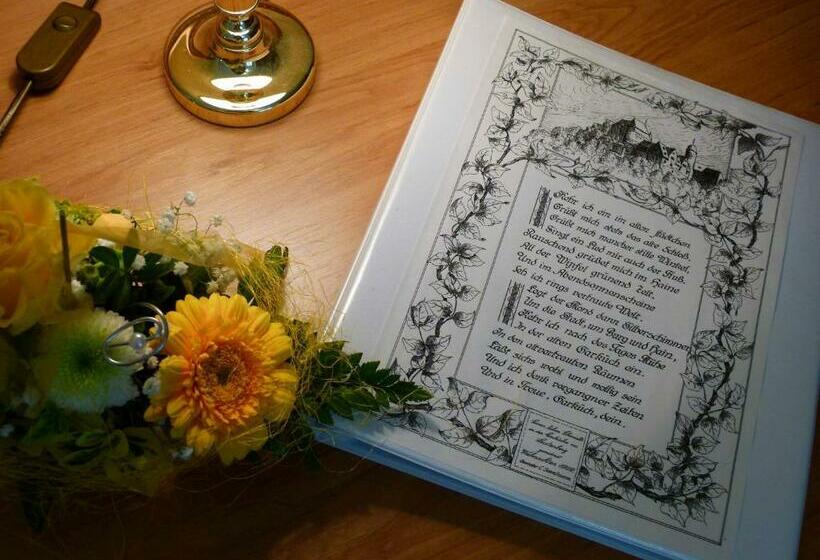 Kehr ich ein im alten Städtchen
Grüßt mich stets das alte Schloß,
Grüßt mich mancher stille Winkel,
Singt ein Lied mir auch der Fluß.
Rauschend grüßet mich im Haine
All der Wipfel grünend Zelt,
Und im Abendsonnenscheine
Seh ich rings vertraute Welt.
Legt der Abend dann Silberschimmer
Um die Stadt, um Burg und Hain,
Kehr ich nach des Tages Mühe
In der alten Garküch ein.
In den altvertrauten Räumen
Läßt sichs wohl und mollig sein
Und ich denk vergangner Zeiten
Und in Treue, Garküch, dein.